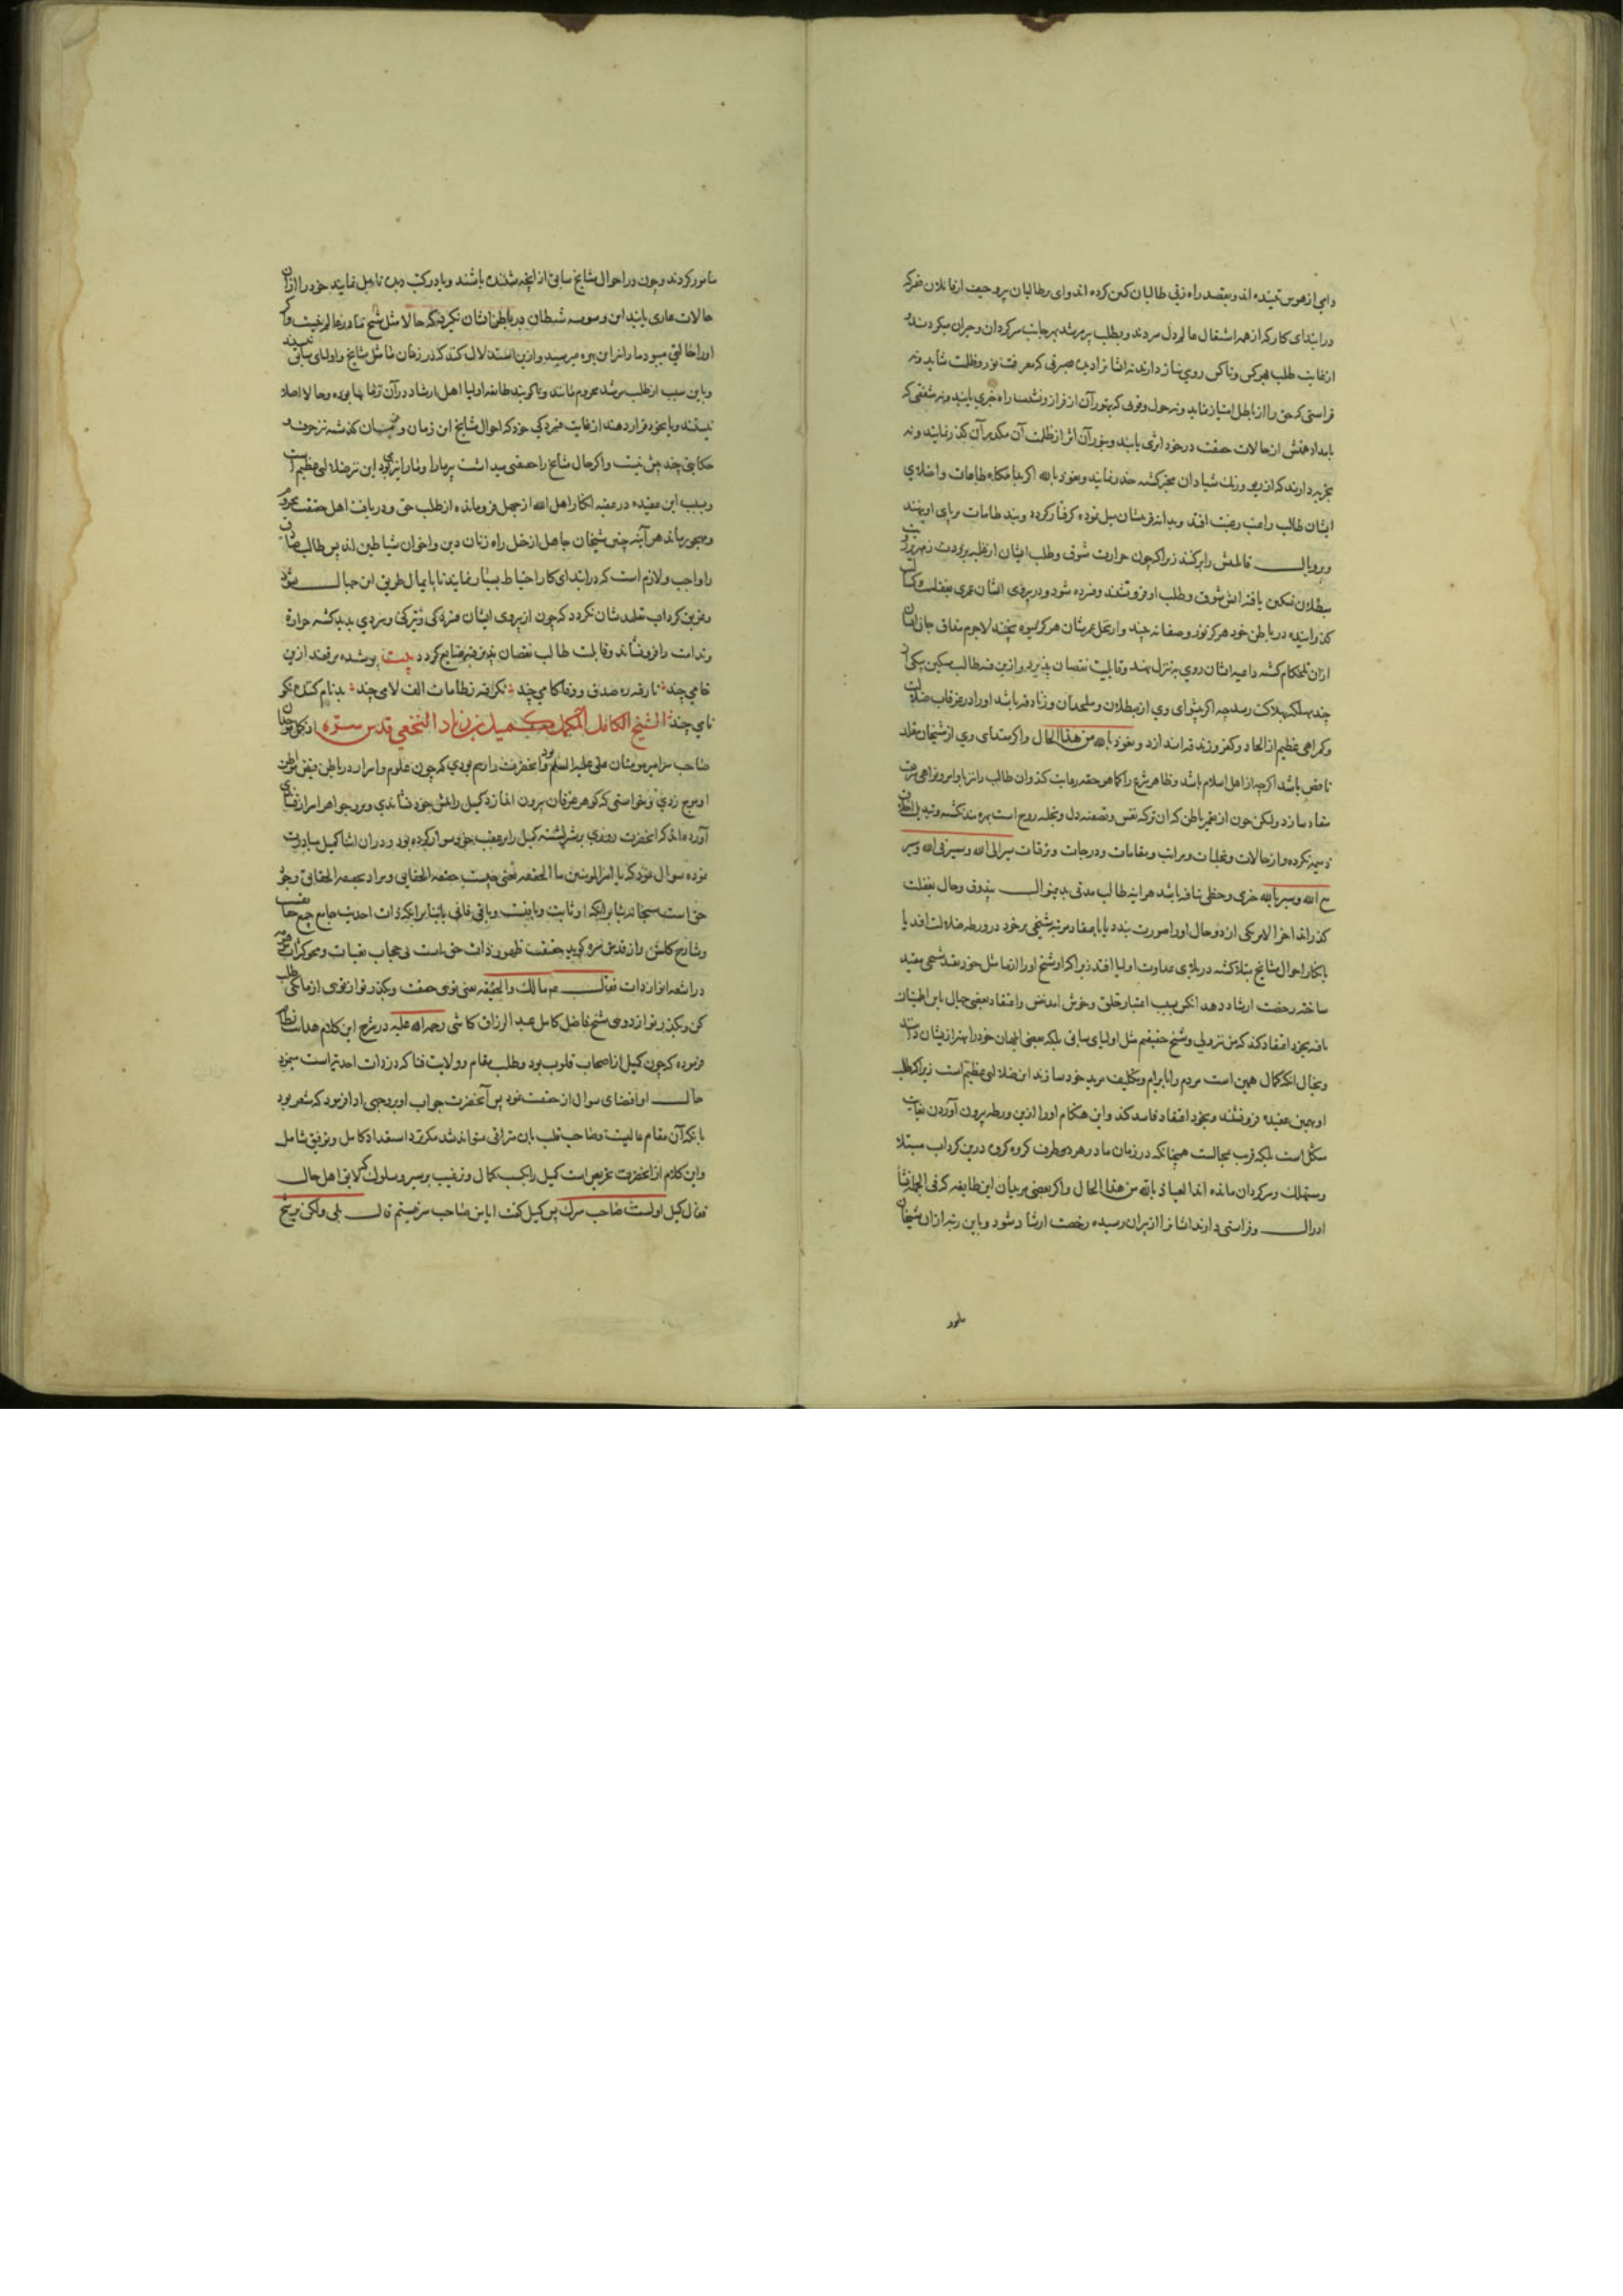 دامی از هوس تنیده اند و بقصد راه زنی طالبان کمین کرده اند وای بر طالبان پر وحیف از غافلان
در ابتدای کار که از همه اشغال عالم دل سرد ند و بطلب پیر مرشد بهر جانب سرکردان و حیران میکردند
از غایت طلب بهر کس و ناکس روی نیاز دارند نه ایشانرا دیده صیرفی که معرفت نور و ظلمت شاید و نه
فراستی که حق را از باطل امتیاز نماید و نه
بامداد همتش از حالات حقیقت در خود اثری یابند و بنور آن اثر از ظلمت آن مکدر آن کذر نمایند و نه
تجربه دارند که از ریو و رنک شیادان محترز کشته حذر نمایند و نعوذ بالله اکر بدامکاه طامات واهلای
ایشان طالب راغب رغبت افتد و بدانه فریبشان میل نموده کرفتار کرده و بند طامات بر پای او نهند
و پر و بال قابلیتش را برکنند زیرا که چون حرارت شوق و طلب ایشان از غلبه برودت زمهریر
مبطلان تسکین یافته آتش شوق و طلب او فرو نشیند و فسرده شود و در پیروی ایشان عمری بغفلت
کذرانیده در باطن خود هرکز نور و صفا نه بیند و از نخل عمرشان هرکز میوه نچیند لاجرم مذاق جان
ازان تلخکام کشته داعیه ایشان روی بتنزل نهد و قابلیت نقصان پذیرد و ازین فتنه طالب مسکین بیکی از
چند مهلکه بهلاکت رسد چه اکر پیشوای وی از مبطلان و ملحدان و زنادقه باشد او را در غرقاب ضلالت
و کمراهی عظیم از الحاد و کفر و زندقه اندازد و نعوذ بالله من هذا الحال و اکر مقتدای وی از شیخان مقلد
ناقص باشد اکرچه از اهل اسلام باشد و ظاهر شرع را کما هو حقه رعایت کند و آن طالب را نیز باوامر و نواهی شریعت
منقاد سازد ولیکن چون از تعمیر باطن که آن تزکیه نفس و تصفیه دل و تجلیه روح است بهره مند نکشته و تبدیل اخلاق
ذمیمه نکرده و از حالات و تجلیات و مراتب و مقامات و درجات و ترقیات سیر الی الله و سیر فی الله و سیر
مع الله و سیر بالله خبری و حظی نیافته باشد هر آینه طالب مدتی بدین منوال بیذوق و حال بغفلت
کذراند آخر الامر یکی ازدو حال او را صورت بندد یا باعتقاد مرتبه شیخی بر خود در ورطه ضلالت افتد یا
بانکار احوال مشایخ مبتلا کشته در بلای عداوت اولیا افتد زیرا که او شیخ او را از تماثل خود بقید شیخی مقید
ساخته رخصت ارشاد دهد آنکس بسبب اعتبار خلق و خوش آمد نفس و اعتقاد بعضی جهال باین اطمینان
یافته بخود اعتقاد کند که من نیز ولی و شیخ حقیقیم مثل اولیای سابق بلکه بعضی ابلهان خود را بهتر از یشان دانند
و بخیال آنکه کمال همین است مردم را بابرام و تکلیف مرید خود سازند این ضلالی عظیم است زیرا که طلب
او بهمین عقیده فرو نشیند و بخود اعتقاد فاسد کند و این هنکام او را ازین ورطه بیرون آوردن بغایت
مشکل است بلکه قریب بمحالست همچنانکه در زمان ما در هر دهی و طرف کروه کروه درین کرداب مبتلا
و مستهلک و سرکردان مانده اند العیاذ بالله من هذا الحال و اکر بعضی مریدان این طایفه که فی الجمله
ادراک و فراستی دارند ایشانرا از پیران رسیده رخصت ارشاد شود و باین رتبه ازان شیخان
مامور
مامور کردند و چون در احوال مشایخ سابق از آنچه شنیده باشند و یا در کتب دیده تامل نمایند خود را ازان
حالات عاری یابند این وسوسه شیطان در باطن ایشان که حالا مثل شیخ ما در عالم نیست و اکر
او را حالتی میبود ما را نیز این بهره میرسید و ازین استدلال کند که در زمان ما مثل مشایخ و اولیای سابق نیستند
و باین سبب از طلب مرشد محروم مانند و یا کویند طایفه اولیا و اهل ارشاد در آن زمانها بوده و حالا اصلا
نیستند و یا بخود قرار دهند از غایت خود که احوال مشایخ این زمان و پیشینیان کذشته نیز حرف و
حکایتی چند بیش نیست و اکر حال مشایخ را حقیقی میداشت پیر ما را و ما را نیز بودی این نیز ضلالی عظیم است
و بسبب این عقیده در عقبه انکار اهل الله از جهل فرومانده از طلب حق و دریافت اهل حقیقت محروم
و مهجور ماند هر آینه چنین شیخان جاهل از خیل راه زنان دین و اخوان شیاطین اند پس طالب صادق
را واجب و لازم است که در ابتدای کار احتیاط بسیار نمایند تا پایمال طریق این جهال نشوند
و غریق کرداب تقلیدشان نکردد که چون از پیروی ایشان فسردکی و تیرکی و سردی پدید کشته حرارة
و قابلیت طالب نقصان پذیرفته ضایع کردد بیت پوشیده مرقعند ازین
خامی چند نا رفته ره صدق و وفا کامی چند نکرفته ز طامات الف لامی چند بدنام کننده نکو
نامی چند الشیخ الکامل المکمل کمیل بن زیاد النخعی قدس سره از کمل مریدان
صاحب سر امیر مومنان علی علیه السلام بود و آنحضرت را رسم بودی که چون علوم و اسرار در باطن فیض مواطن
او موج زدی و خواستی که کوهر عرفان بیرون اندازد کمیل را پیش خود نشاندی و برو جواهر اسرار فشاندی
آورده اند که آنحضرت روزی بر شتر نشسته کمیل را بر عقب خود سوار کرده بود و در آن اثنا کمیل مبادرت
نموده سوال نمود که یا امیر المومنین ما الحقیقه یعنی چیست حقیقه الحقایق و مراد بحقیقه الحقایق وجود
حق است سبحانه بنا بر آنکه او ثابت و باقیست و باقی فانی یا بنا بر آنکه ذات احدیت جامع جمیع حقایقست
و شارح کلشن راز قدس سره کوید حقیقت ظهور ذات حق است بی حجاب تعینات و محو کثرات موهومه
در اشعه انوار ذات فقال ع م مالک والحقیقه یعنی توی حقیقت و بکذر تو از توی از ما طلب
کن و بکذر تو از دوی شیخ فاضل کامل عبد الرزاق کاشی رحمه الله علیه در شرح این کلام هدایت نظام
فرموده که چون کمیل از اصحاب قلوب بود و طلب مقام ولایت فنا که در ذات احدیتست میکرد
حال او اقتضای سوال از حقیقت نمود پس آنحضرت جواب او بر وجهی ادا فرمود که مشعر بود
بانکه آن مقام عالیست و صاحب قلب بان مترقی نتواند شد مکر نزد استعداد کامل و توفیق شامل
و این کلام از آنحضرت تحریض است کمیل را بکسب کمال و ترغیب بر سیر و سلوک لایق اهل حال
فقال کمیل اولست صاحب سرک پس کمیل کفت آیا من صاحب سر نیستم قال بلی ولکن یرشح